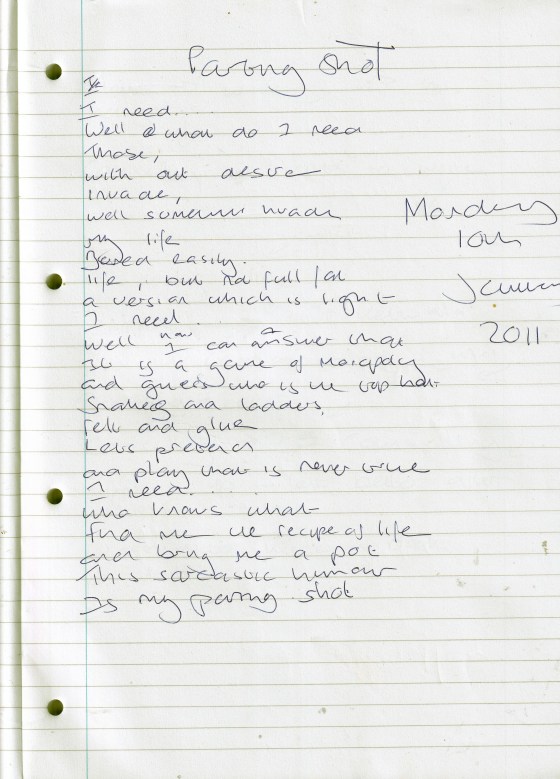 Parting shot
I need....
Well what do I need
Those,
with out desire
Invade,
well my life
Bored easily.
life, but not full fat
a version which is light
I need..
Well now I can answer that
It is a game of Monopoly
and guess who is the top hat
Snakes and ladders,
Felt and glue
Lets pretend
and play that is never true
I need......
who knows what
find me the recipe of life
and bring me a pot
This sarcastic humour
Is my parting shot
Monday
10th
January
2011